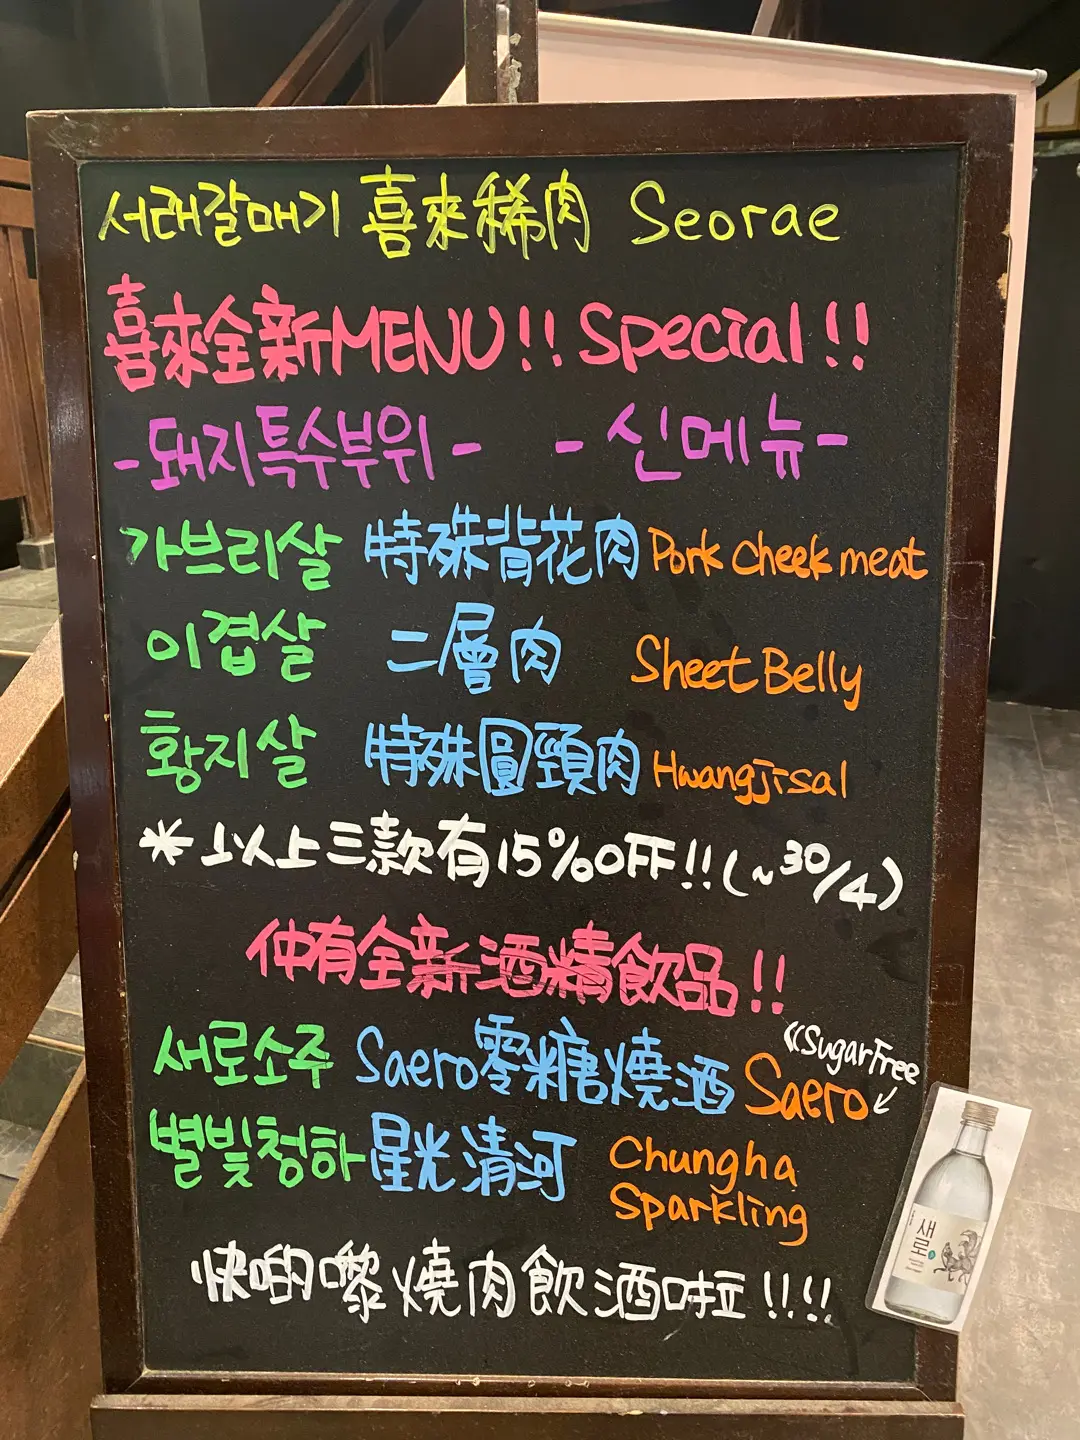 서래갈매기 喜來稀肉 Seorae
喜來全新MENU!! Special!!
-돼지특수부위- -신메뉴-
가브리살 特殊背花肉 Pork Cheek meat
이겹살 二層肉 Sheet Belly
황지살 特殊圓頸肉 Hwangjisal
* 以上三款有15%OFF!! (~30/4)
仲有全新酒精飲品!!
«Sugar Free
새로소주 Saero零糖燒酒 Saero
별빛청하 星光清河 Chungha Sparkling
快啲嚟燒肉飲酒啦!!!!
새로